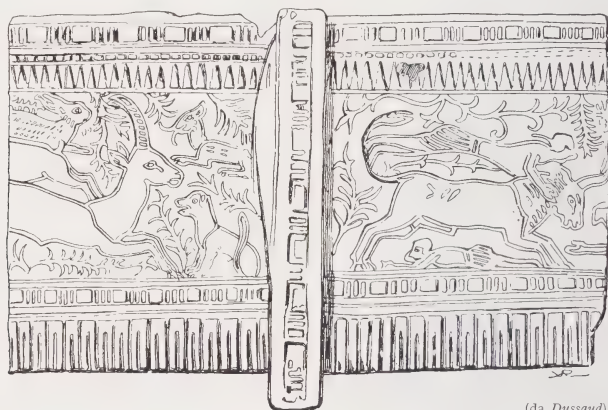 (da Dussaud)